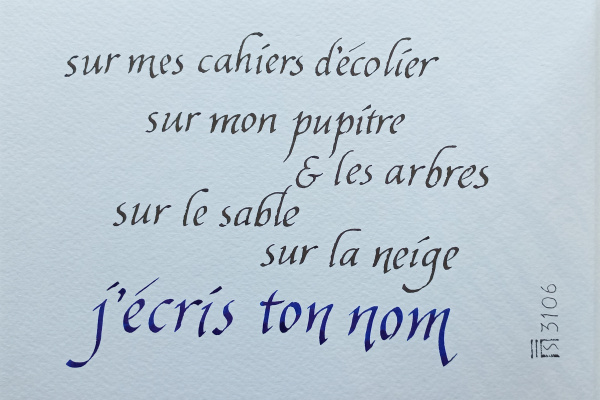 sur mes cahiers d'écolier
sur mon pupitre
& les arbres
sur le sable
sur la neige
j'écris ton nom
3106